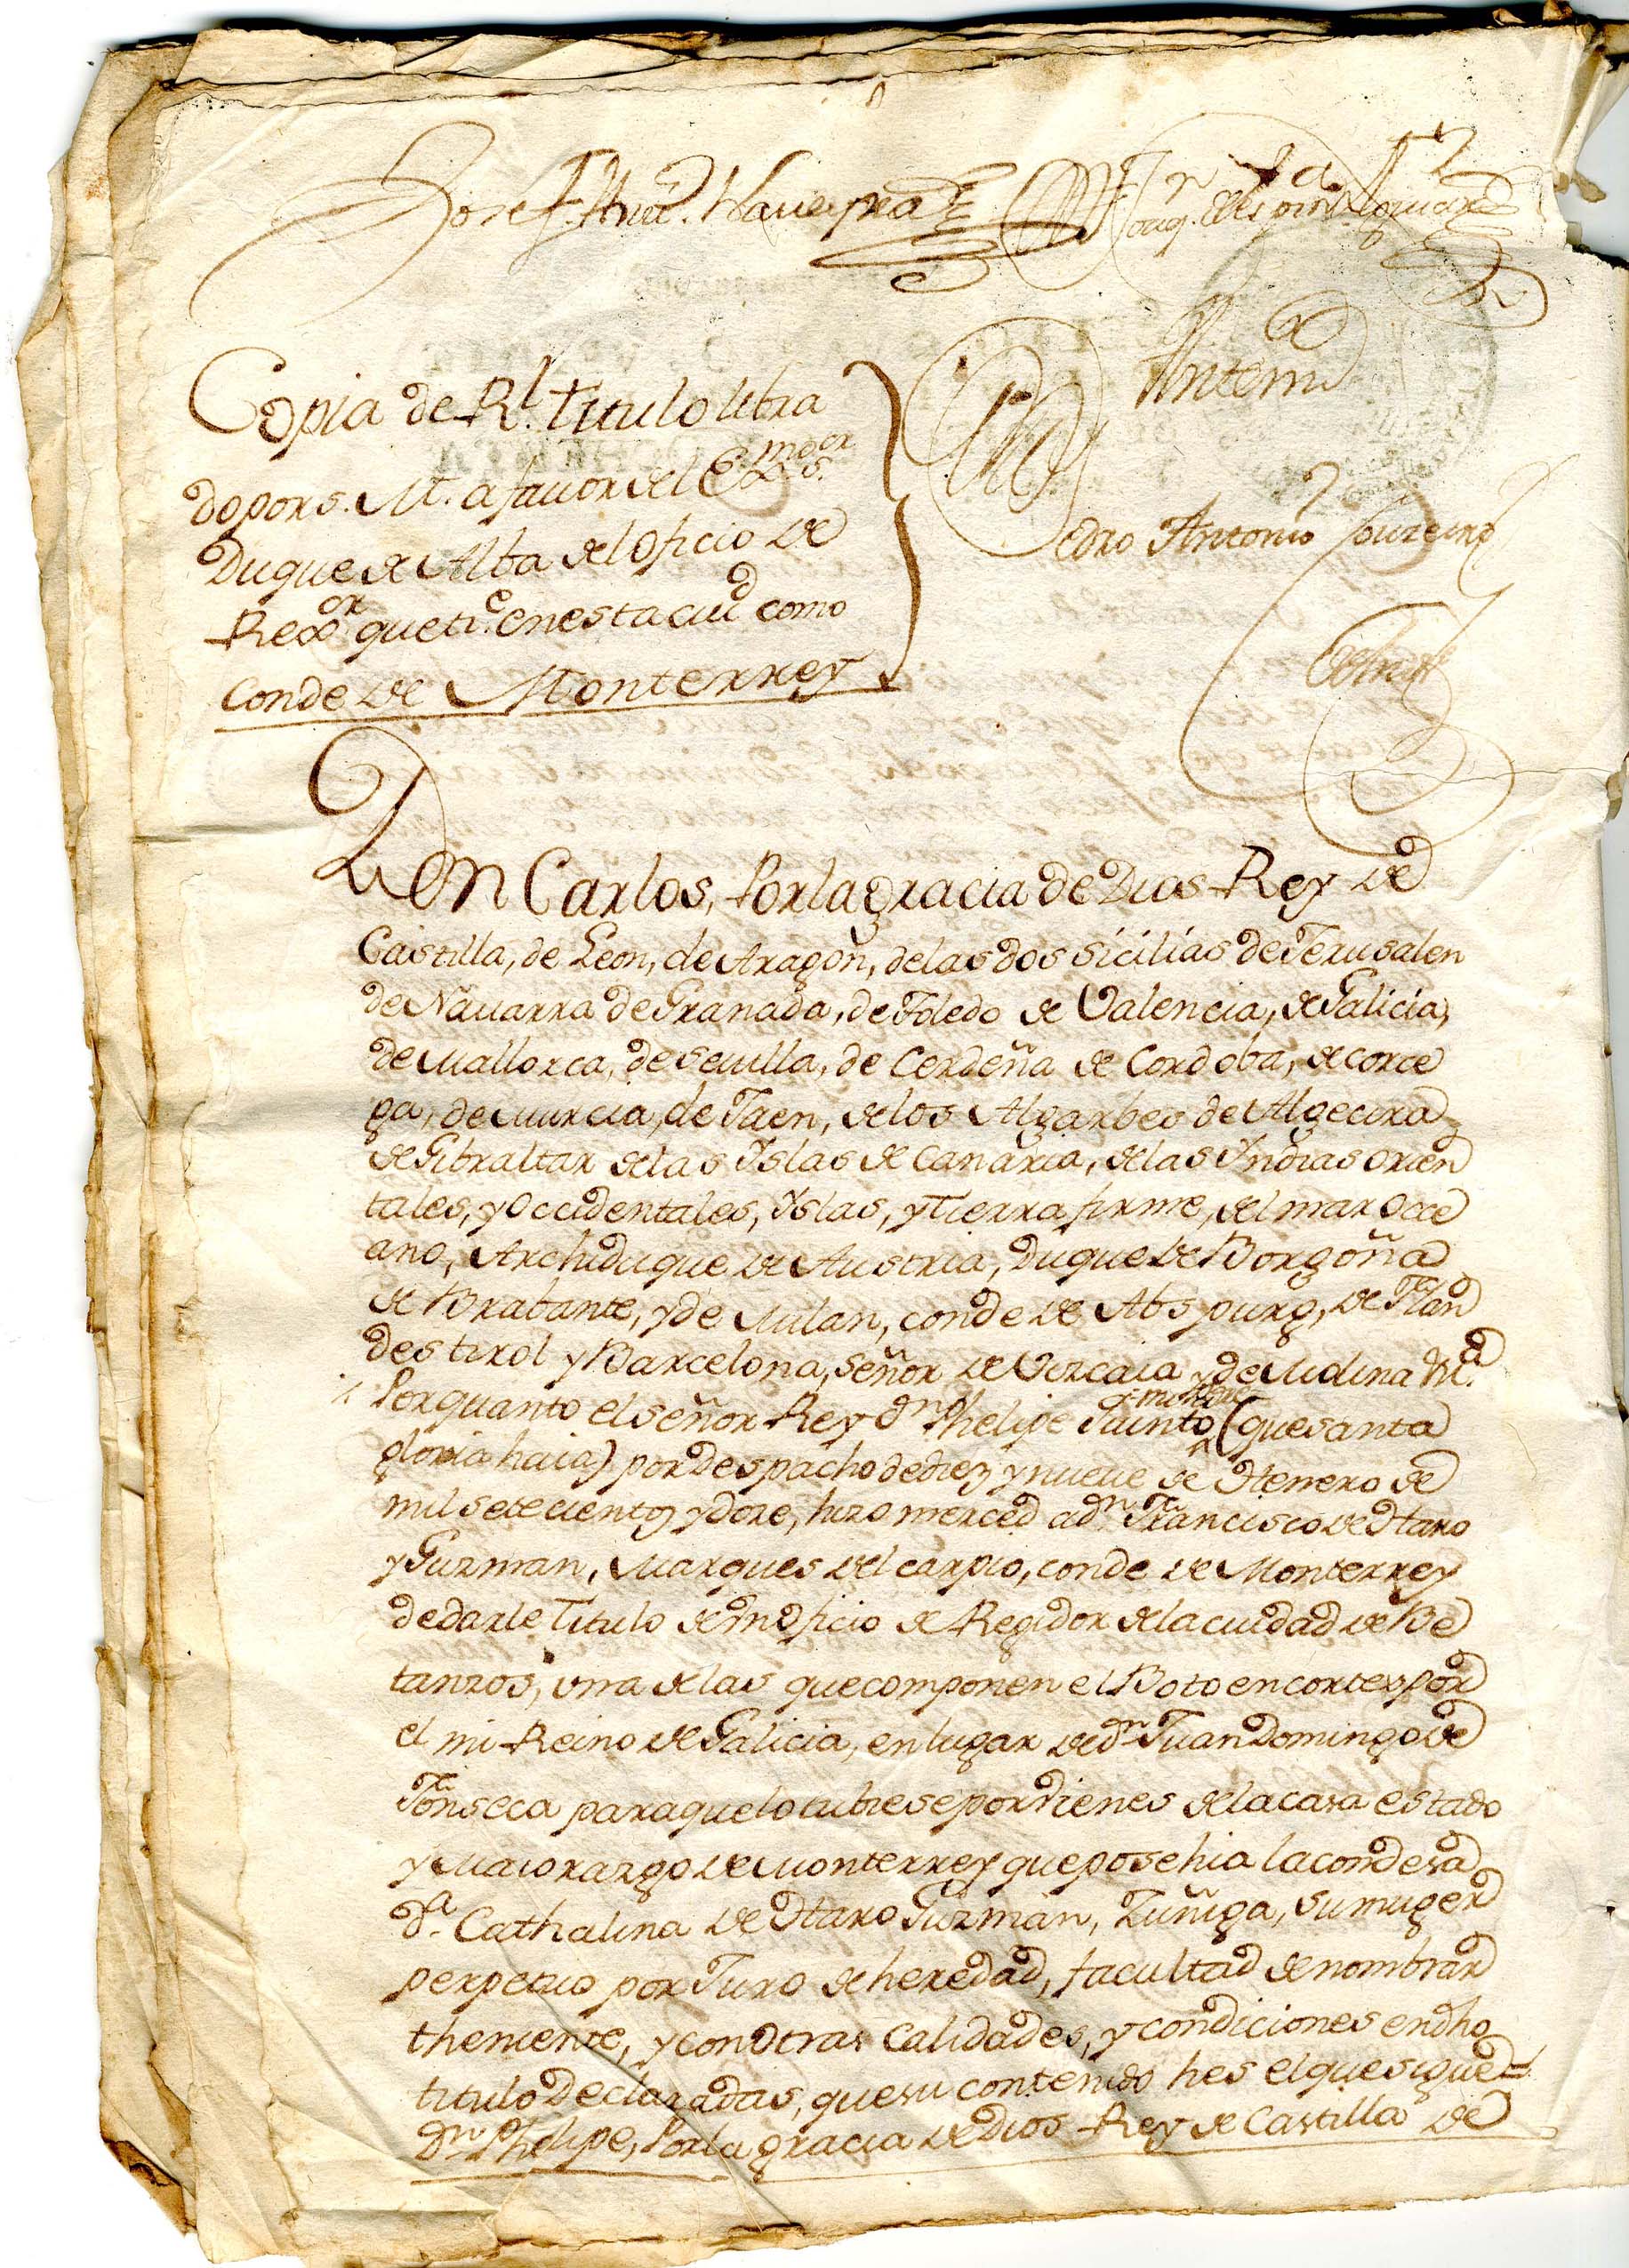 Josef Antt.
Antemi
Copia de Rl. titulo libra
do por S. M. a favor del Exmo. Sor.
Duque de Alba del oficio de
Rexor que tie. en esta ciud. como
Conde de Monterrey
Pedro Antonio Couzeiro
Don Carlos, Por la gracia de Dios Rey de
Castilla, de Leon, de Aragon, de las dos sicilias de Jerusalen
de Nauarra de Granada, de Toledo de Valencia, de Galicia,
de Mallorca, de Seuilla, de Cerdeña de Cordoba, de corce
ga, de Murcia, de Jaen, de los Algarbes de Algecira
de Gibraltar de las Yslas de Canaria, de las Yndias orien
tales, y Occidentales, Yslas, y tierra firme, del mar occe
ano, Archiduque de Austria, Duque de Borgoña
de Brabante, y de Milan, conde de Abspurg, de Flan
des tirol y Barcelona, señor de Vizcaia y de Molina &a.
Por quanto el señor Rey Dn. Phelipe Quinto (que santa
gloria haia) por despacho de diez y nueve de Henero de
mil setecientos y doze, hizo merced a dn. Francisco de Haro
y Guzman, Marques del carpio, conde de Monterrey
de darle titulo de un oficio de Regidor de la ciudad de Be
tanzos, una de las que componen el Boto en cortes por
el mi Reino de Galicia, en lugar de dn. Juan Domingo de
Fonseca para que lo tubiese por vienes de la casa estado
y Maiorazgo de Monterrey que posehia la condesa
Da. Cathalina de Haro Guzman, Zuñiga, su muger
perpetuo por Juro de heredad, facultad de nombrar
theniente, y con otras Calidades, y condiciones en dho
titulo Declaradas, que su contenido hes el que sigue=
Dn. Phelipe, Por la gracia de Dios Rey de Castilla de